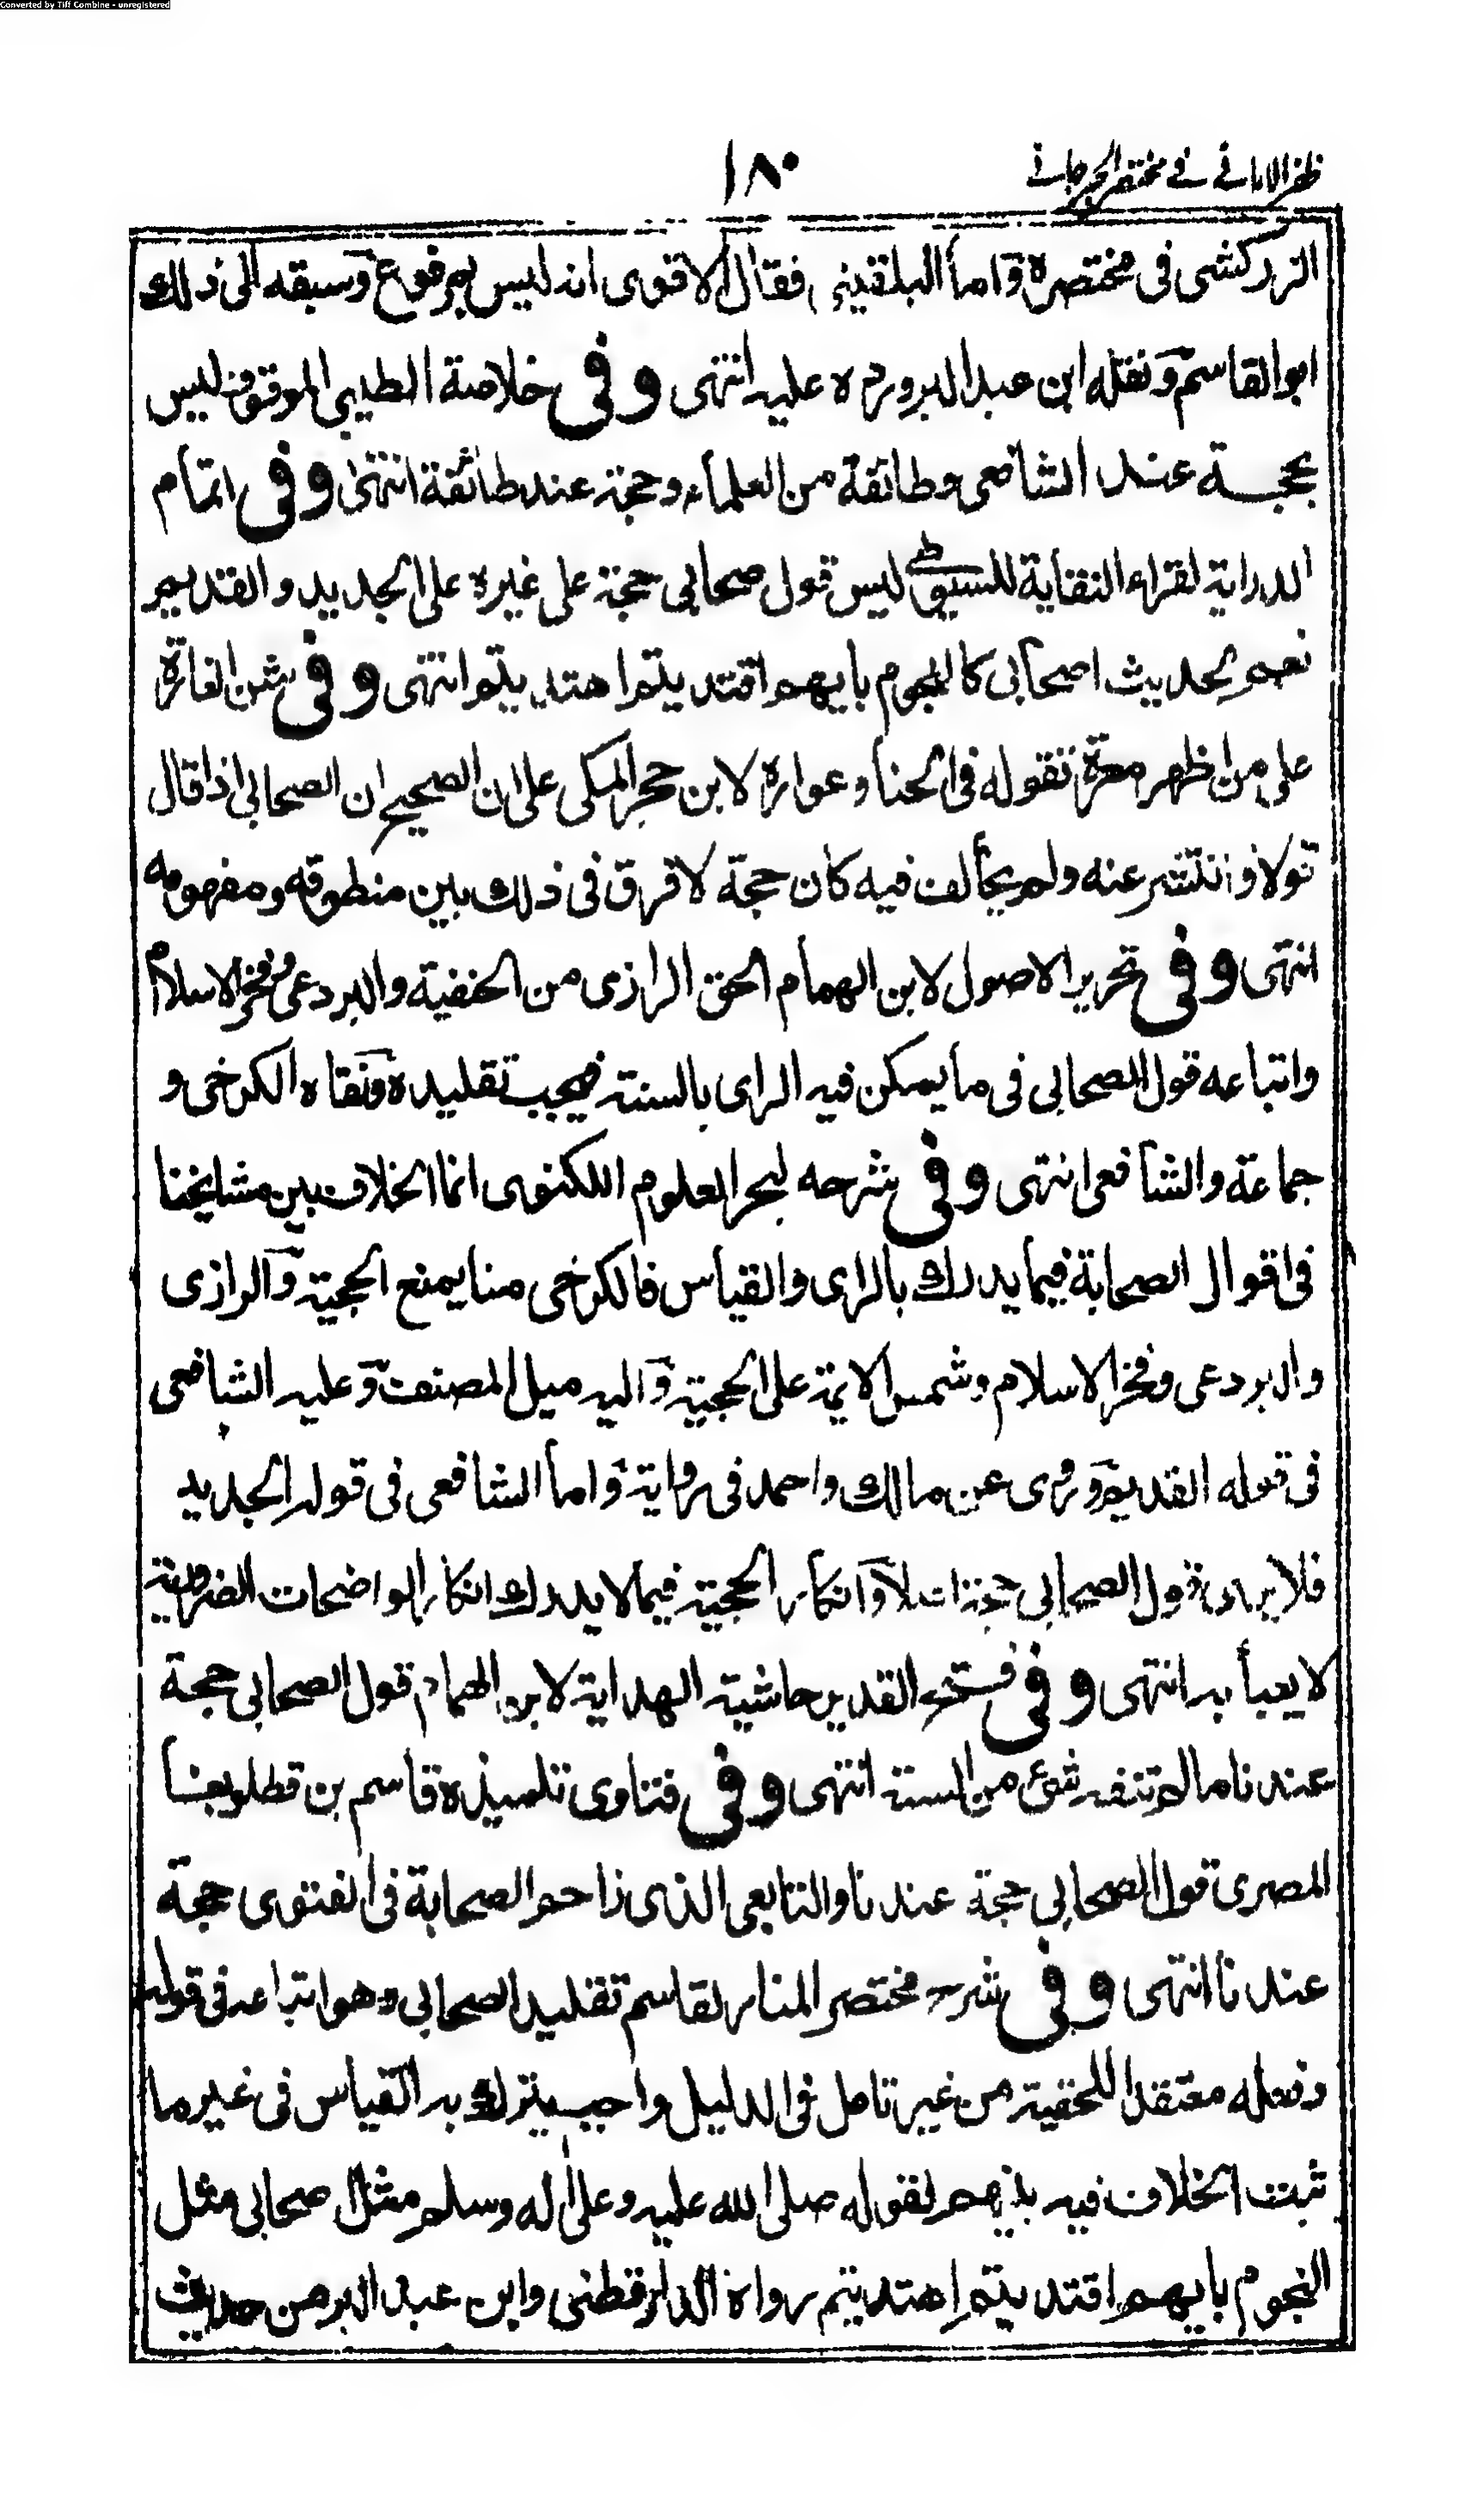 Converted by Tiff Combine - unregistered
ظفر الامانے فے مختصر الجرجانے
١٨٠
الزركشى فى مختصره واما البلقينى فقال الاقوى انه ليس بمرفوع وسبقه الى ذلك
ابو القاسم ونقله ابن عبد البر ورده عليه انتهى وفى خلاصة الطيبى الموقوف ليس
بحجة عند الشافعى وطائفة من العلماء وحجة عند طائفة انتهى وفى اتمام
الدراية لقراء النقاية للسيوطى ليس قول صحابى حجة على غيره على الجديد والقديم
نعم لحديث اصحابى كالنجوم بايهم اقتديتم اهتديتم انتهى وفى شن الغارة
على من اظهر معرة تقوله فى الحنا وعواره لابن حجر المكى على ان الصحيح ان الصحابى اذا قال
قولا وانتشر عنه ولم يخالف فيه كان حجة لا فرق فى ذلك بين منطوقه ومفهومه
انتهى وفى تحرير الاصول لابن الهمام الحق الرازى من الحنفية والبردعى وفخر الاسلام
واتباعه قول الصحابى فى ما يمكن فيه الراى بالسنة فيجب تقليده ونفاه الكرخى و
جماعة والشافعى انتهى وفى شرحه لبحر العلوم اللكنوى انما الخلاف بين مشايخنا
فى اقوال الصحابة فيما يدرك بالراى والقياس فالكرخى منا يمنع الحجية والرازى
والبردعى وفخر الاسلام وشمس الائمة على الحجية واليه ميل المصنف وعليه الشافعى
فى قوله القديم وروى عن مالك واحمد فى رواية واما الشافعى فى قوله الجديد
فلا يرى قول الصحابى حجة اصلا وانكار الحجية فيما لا يدرك انكار الواضحات الضرورية
لا يعبأ به انتهى وفى فتح القدير حاشية الهداية لابن الهمام قول الصحابى حجة
عندنا ما لم تنفه شئ من السنة انتهى وفى فتاوى تلميذه قاسم بن قطلوبغا
المصرى قول الصحابى حجة عندنا والتابعى الذى زاحم الصحابة فى الفتوى حجة
عندنا انتهى وفى شرح مختصر المنار لقاسم تقليد الصحابى وهو اتباعه فى قوله
وفعله معتقدا للحقية من غير تامل فى الدليل واجب يترك به القياس فى غير ما
ثبت الخلاف فيه بينهم لقوله صلى الله عليه وعلى اله وسلم مثل صحابى مثل
النجوم بايهم اقتديتم اهتديتم رواه الدارقطنى وابن عبد البر من حديث